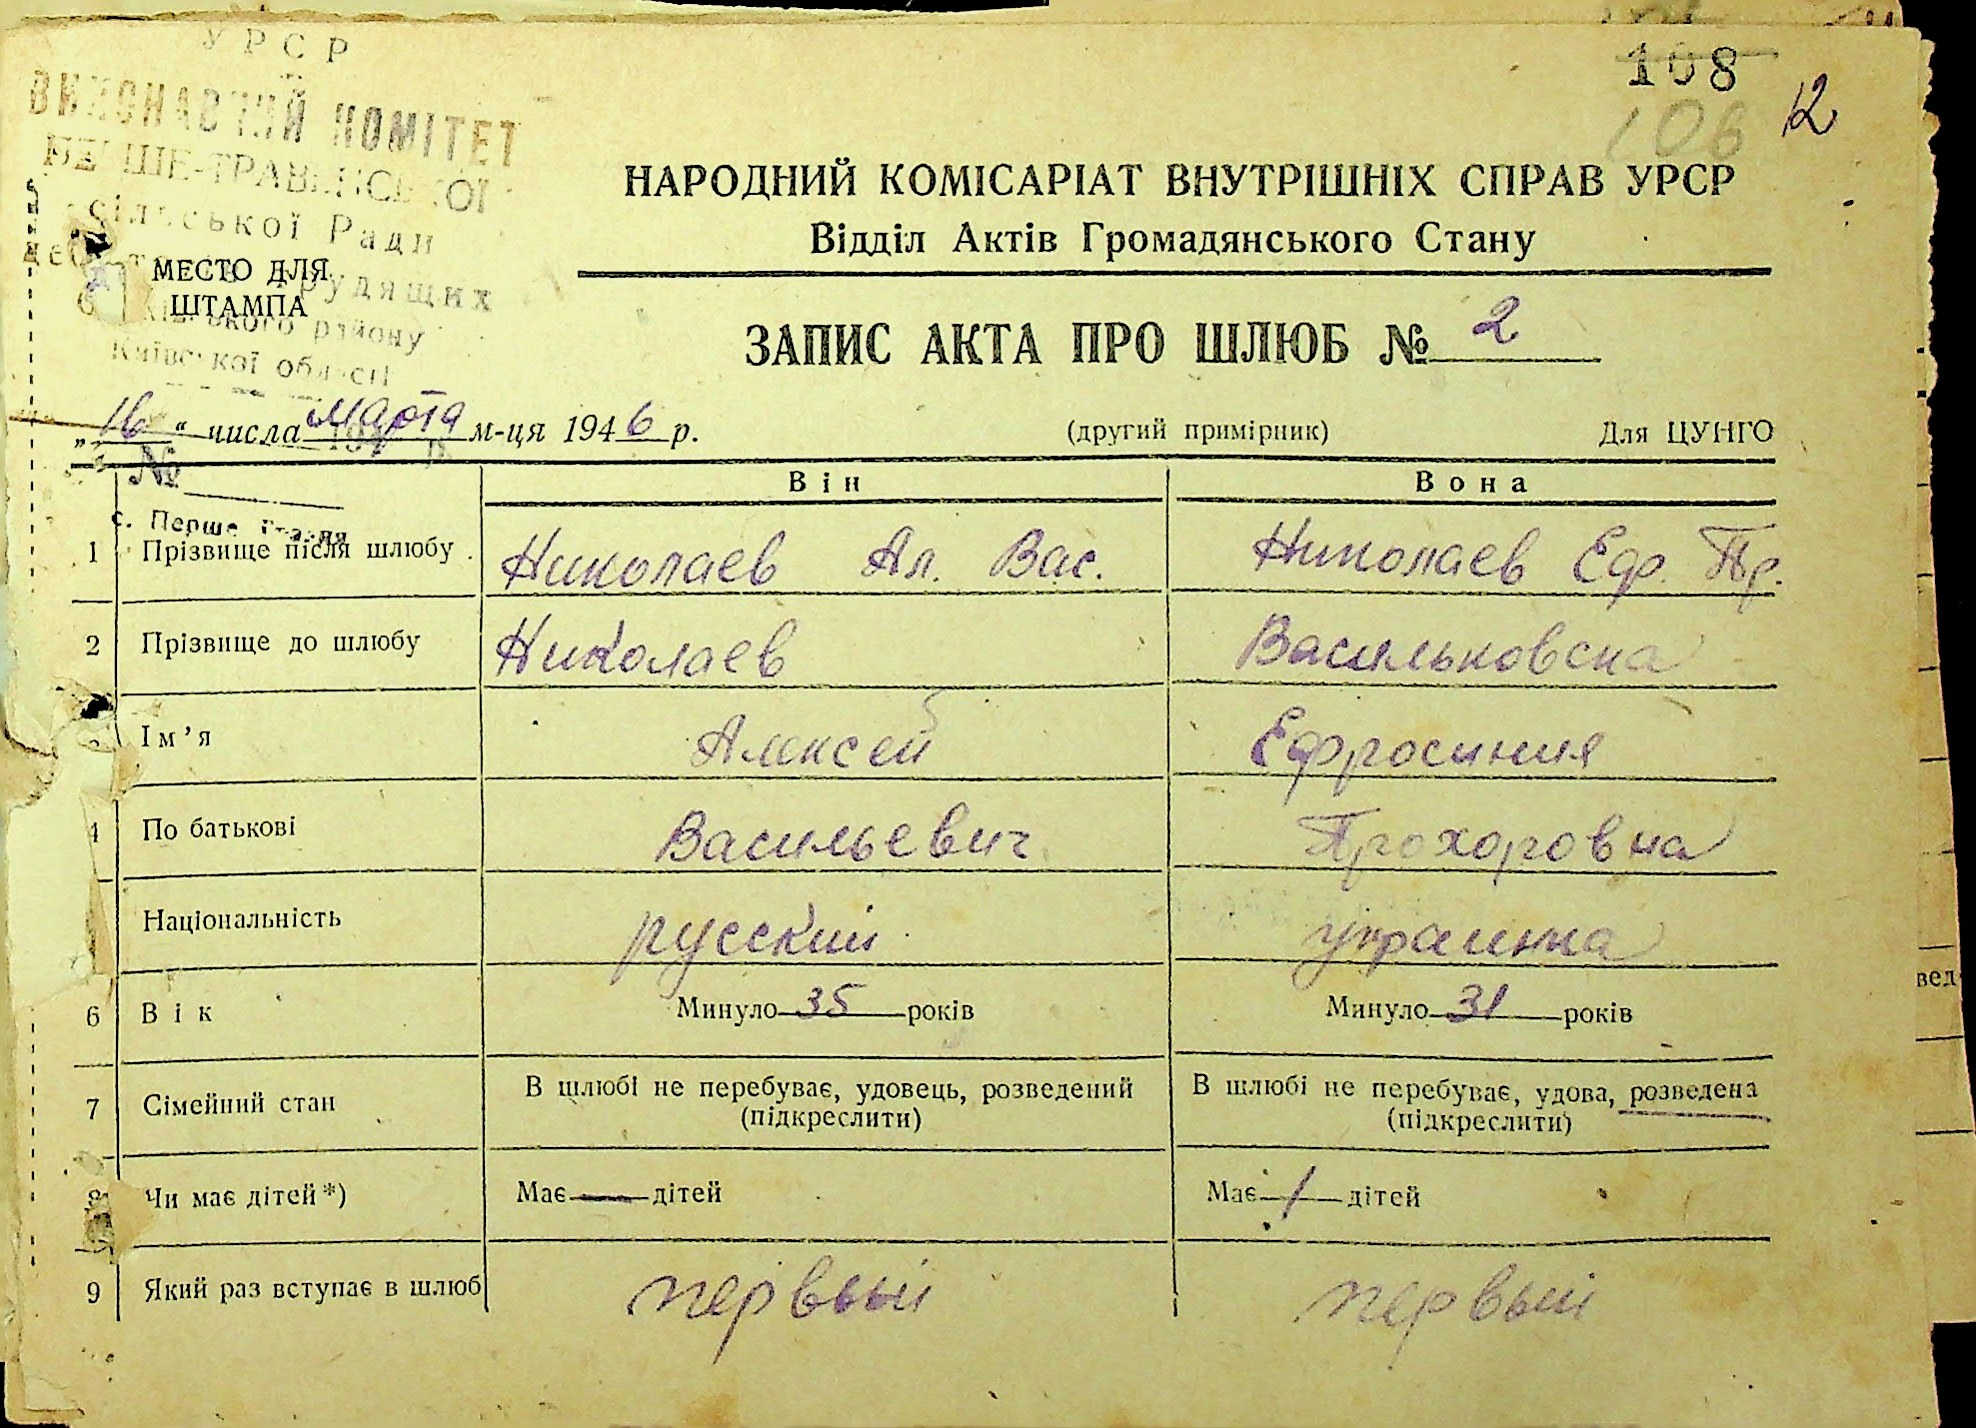 УРСР
ВИКОНАВЧИЙ КОМІТЕТ
ПЕРШЕ-ТРАВЕНСЬКОЇ
сільської Ради
МЕСТО ДЛЯ трудящих
ШТАМПА
району
Київської області
108
106 12
НАРОДНИЙ КОМІСАРІАТ ВНУТРІШНІХ СПРАВ УРСР
Відділ Актів Громадянського Стану
ЗАПИС АКТА ПРО ШЛЮБ № 2
„16“ числа марта м-ця 1946 р. (другий примірник) Для ЦУНГО
№
Він Вона
с. Перше Травня
1 Прізвище після шлюбу Николаев Ал. Вас. Николаев Ефр. Пр.
2 Прізвище до шлюбу Николаев Васильковска
Ім’я Алексей Ефросиния
4 По батькові Васильевич Прохоровна
Національність русский украинка
6 Вік Минуло 35 років Минуло 31 років
7 Сімейний стан В шлюбі не перебуває, удовець, розведений (підкреслити) В шлюбі не перебуває, удова, розведена (підкреслити)
8 Чи має дітей*) Має — дітей Має 1 дітей
9 Який раз вступає в шлюб первый первый
вед